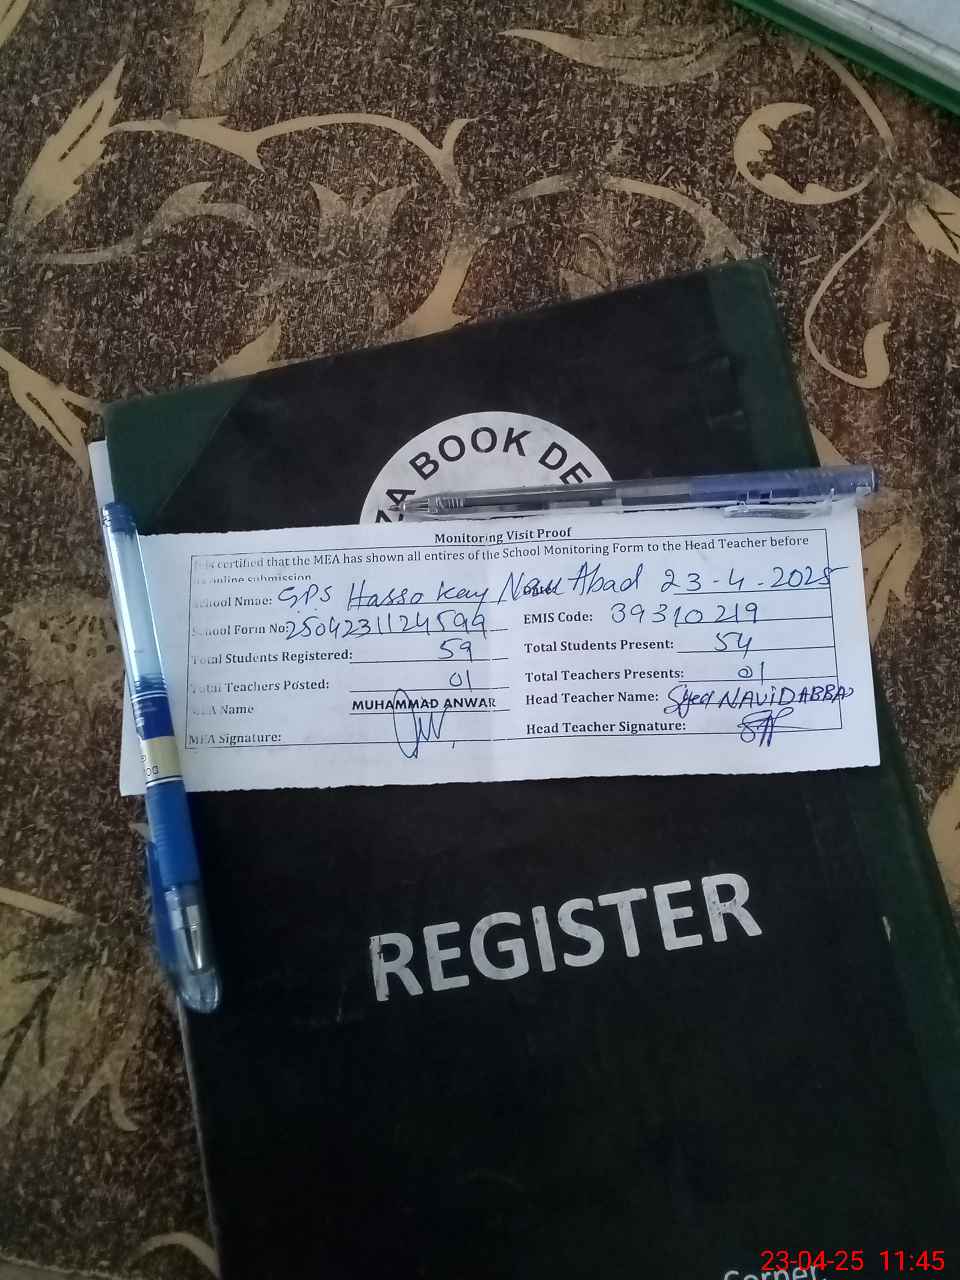 ZA BOOK DE
Monitoring Visit Proof
is certified that the MEA has shown all entires of the School Monitoring Form to the Head Teacher before
online submission
School Nmae: GPS Hasso Kay Naw Abad Date: 23-4-2025
School Form No: 250423112459 EMIS Code: 39310219
Total Students Registered: 59 Total Students Present: 54
Total Teachers Posted: 01 Total Teachers Presents: 01
MEA Name MUHAMMAD ANWAR Head Teacher Name: Syed NAVID ABBAS
MEA Signature: Head Teacher Signature:
OG
REGISTER
Corner
23-04-25 11:45